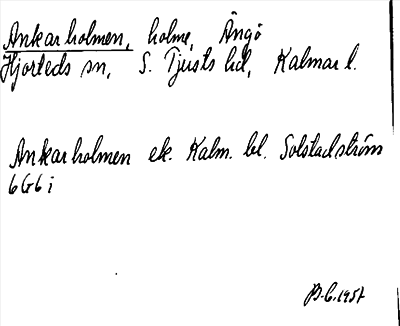 Ankarholmen, holme, Ängö
Hjorteds sn, S. Tjusts hd, Kalmar l.
Ankarholmen ek. Kalm. bl. Solstadström
6G6i
B.C. 1957